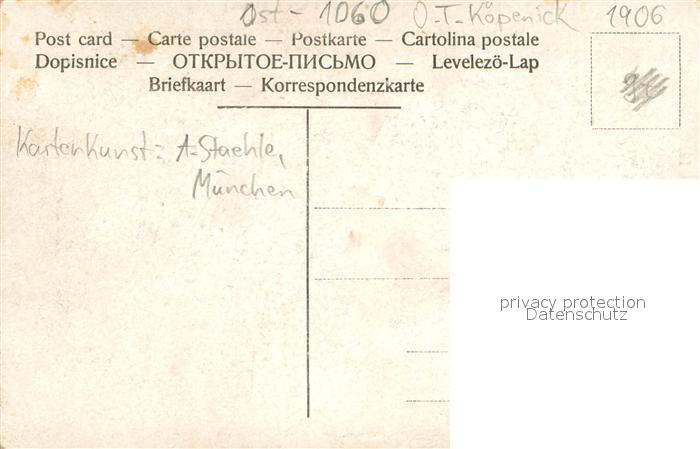 Ost - 1060 O.T. Köpenick 1906
Post card — Carte postale — Postkarte — Cartolina postale
Dopisnice — ОТКРЫТОЕ-ПИСЬМО — Levelezö-Lap
Briefkaart — Korrespondenzkarte
Kartenkunst: A. Staehle,
München
privacy protection
Datenschutz